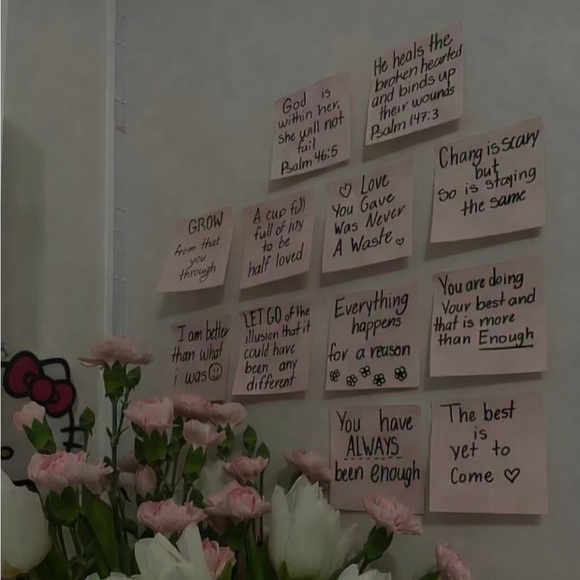 God is
within her,
she will not
fail
Psalm 46:5
He heals the
broken hearted
and binds up
their wounds
Psalm 147:3
GROW
from that
you
through
A cup full
full of joy
to be
half loved
♡ Love
You Gave
Was Never
A Waste ♡
Chang is scary
but
So is staying
the same
I am better
than what
i was☺
LET GO of the
illusion that it
could have
been any
different
Everything
happens
for a reason
You are doing
Your best and
that is more
than Enough
You have
ALWAYS
been enough
The best
is
yet to
Come ♡